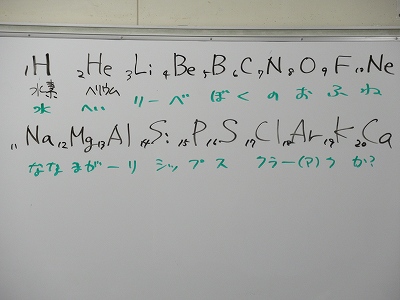 1H 2He 3Li 4Be 5B 6C 7N 8O 9F 10Ne
水素 ヘリウム
水 へい リーベ ぼくのおふね
11Na 12Mg 13Al 14Si 15P 16S 17Cl 18Ar 19K 20Ca
ななまがーり シップス クラー(?)ク か?